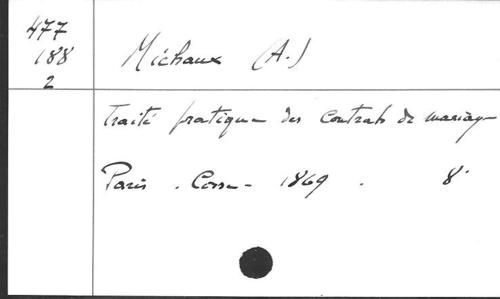 477
188
2
Michaux (A.)
Traité pratique des contrats de mariage
Paris . Cosse - 1869 . 8°